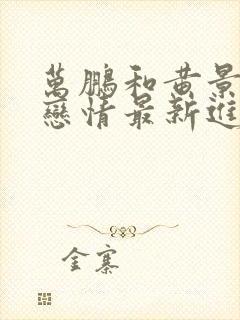 萬鵬和黃景
戀情最新進
金寨